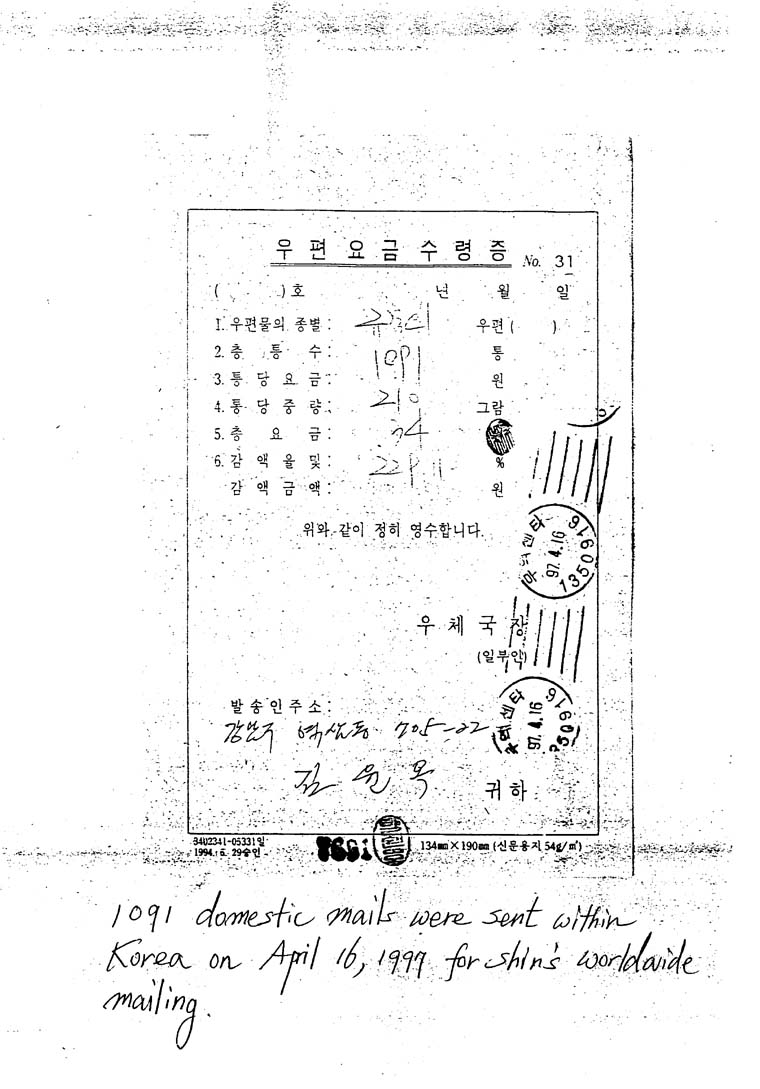 우 편 요 금 수 령 증 No. 31
( ) 호 년 월 일
1. 우편물의 종별 : 우편 ( )
2. 총 통 수 : 1091 통
3. 통 당 요 금 : 원
4. 통 당 중 량 : 210 그람
5. 총 요 금 :
6. 감 액 율 및 : %
감 액 금 액 : 원
위와 같이 정히 영수합니다.
97. 4.16
1350916
우 체 국 장
(일부인)
발 송 인 주 소 :
강남구 역삼동 705-22
97. 4.16
김 윤 목 귀 하
34U2341-05331일
1994. 6. 29승인
134㎜×190㎜ (신문용지 54g/㎡)
1091 domestic mails were sent within
Korea on April 16, 1997 for shin's worldwide
mailing.